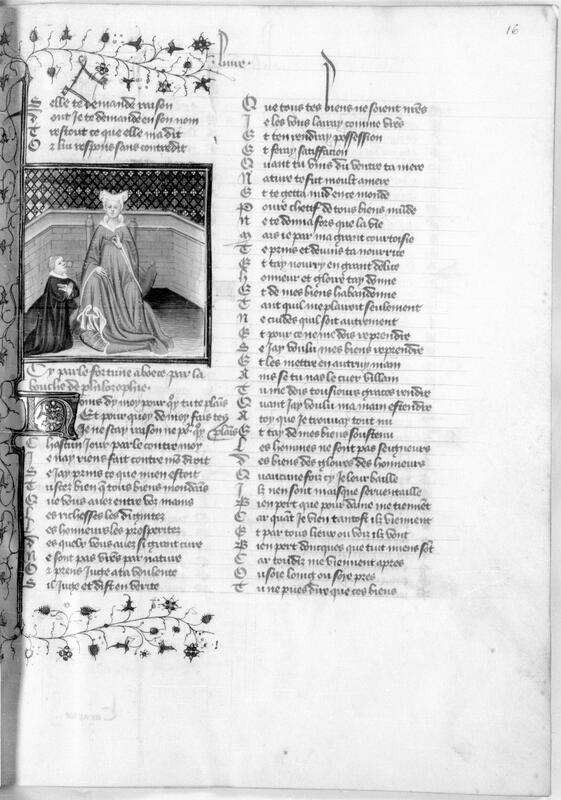 16
Livre .
S elle te demande raison
D ont Je te demande en son nom
T restout ce que elle ma dit
O r luy respons sans contredit
Cy parle fortune a boece par la
bouche de philosophie .
ous dy moy pour qy tu te plais
Et pour quoy de moy fais tes plais
Je ne scay raison ne pr qy
C hascun Jour par le contre moy
I e nay riens fait contre mō droit
S e Jay prins ce que mien estoit
T u scez bien q̄ tous biens mondais
Q ue vous auez entre voz mains
L es richesses les dignitez
L es honneurs les prosperitez
D es quelx vous auez si grant cure
N e sont pas vr̄es par nature
O r prens Juge a ta voulente
S il Juge et dist en verite
Q ue tous tes biens ne soient miēs
I e les vous lairay comme vr̄es
E t ten rendray possession
E t feray satiffacion
Q uant tu vins du ventre ta mere
N ature te fut moult amere
E t te getta nud en ce monde
P oure chetif de tous biens mūde
N e te donna fors que la vie
M ais ie par ma grant courtoisie
T e prins et deuins ta nourrice
E t tay nourry en grant delice
H onneur et gloire tay donne
E t de mes biens habandonne
T ant quil me plaisoit seulement
N e cuides quil soit autrement
E t pour ce ne me dois reprendre
S e Jay voulu mes biens reprendre
E t les mettre en autruy main
A ins se tu nas le cuer villain
T u me dois tousiours graces rendre
Q uant Jay voulu ma main estendre
A toy que Je trouuay tout nu
E t tay de mes biens soustenu
L es hommes ne sont pas seigneurs
D es biens des gloires des honneurs
Q uaucune fois cy Je leur baille
I lz nen sont mais que seruentaille
B ien port que pour dame me tiennēt
C ar quāt Je vien tantost ilz viennent
E t par tous lieux ou vois ilz vont
B ien port doncques que tuit miens sōt
C ar toudiz me viennent apres
O u soie loing ou soie pres
T u ne pues dire que ces biens